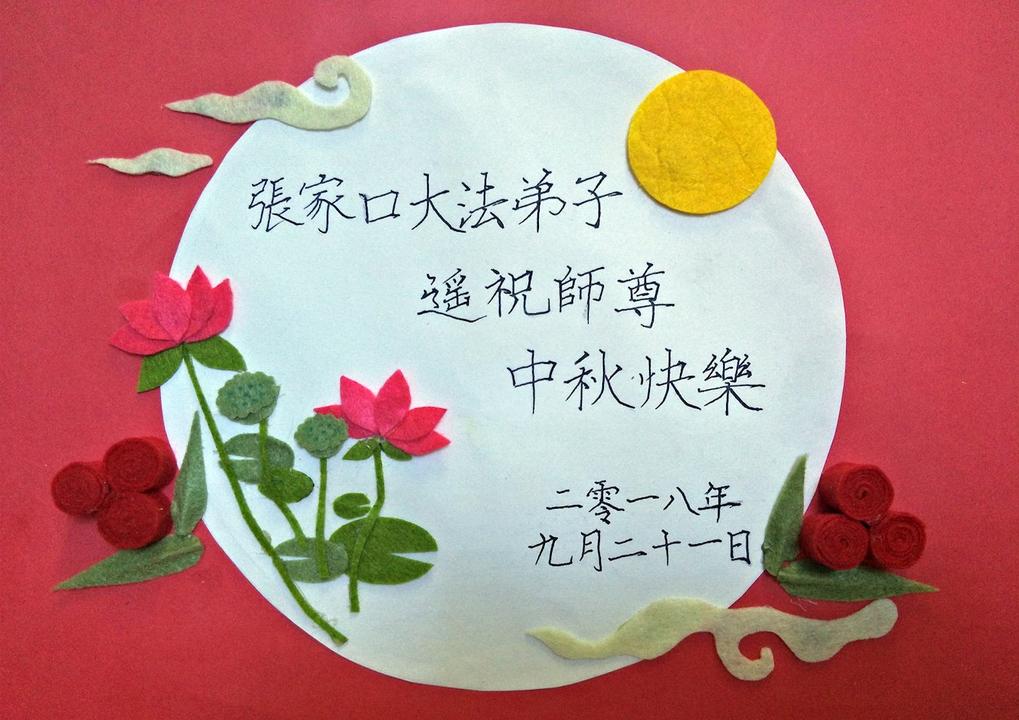 張家口大法弟子
遥祝師尊
中秋快樂
二零一八年
九月二十一日